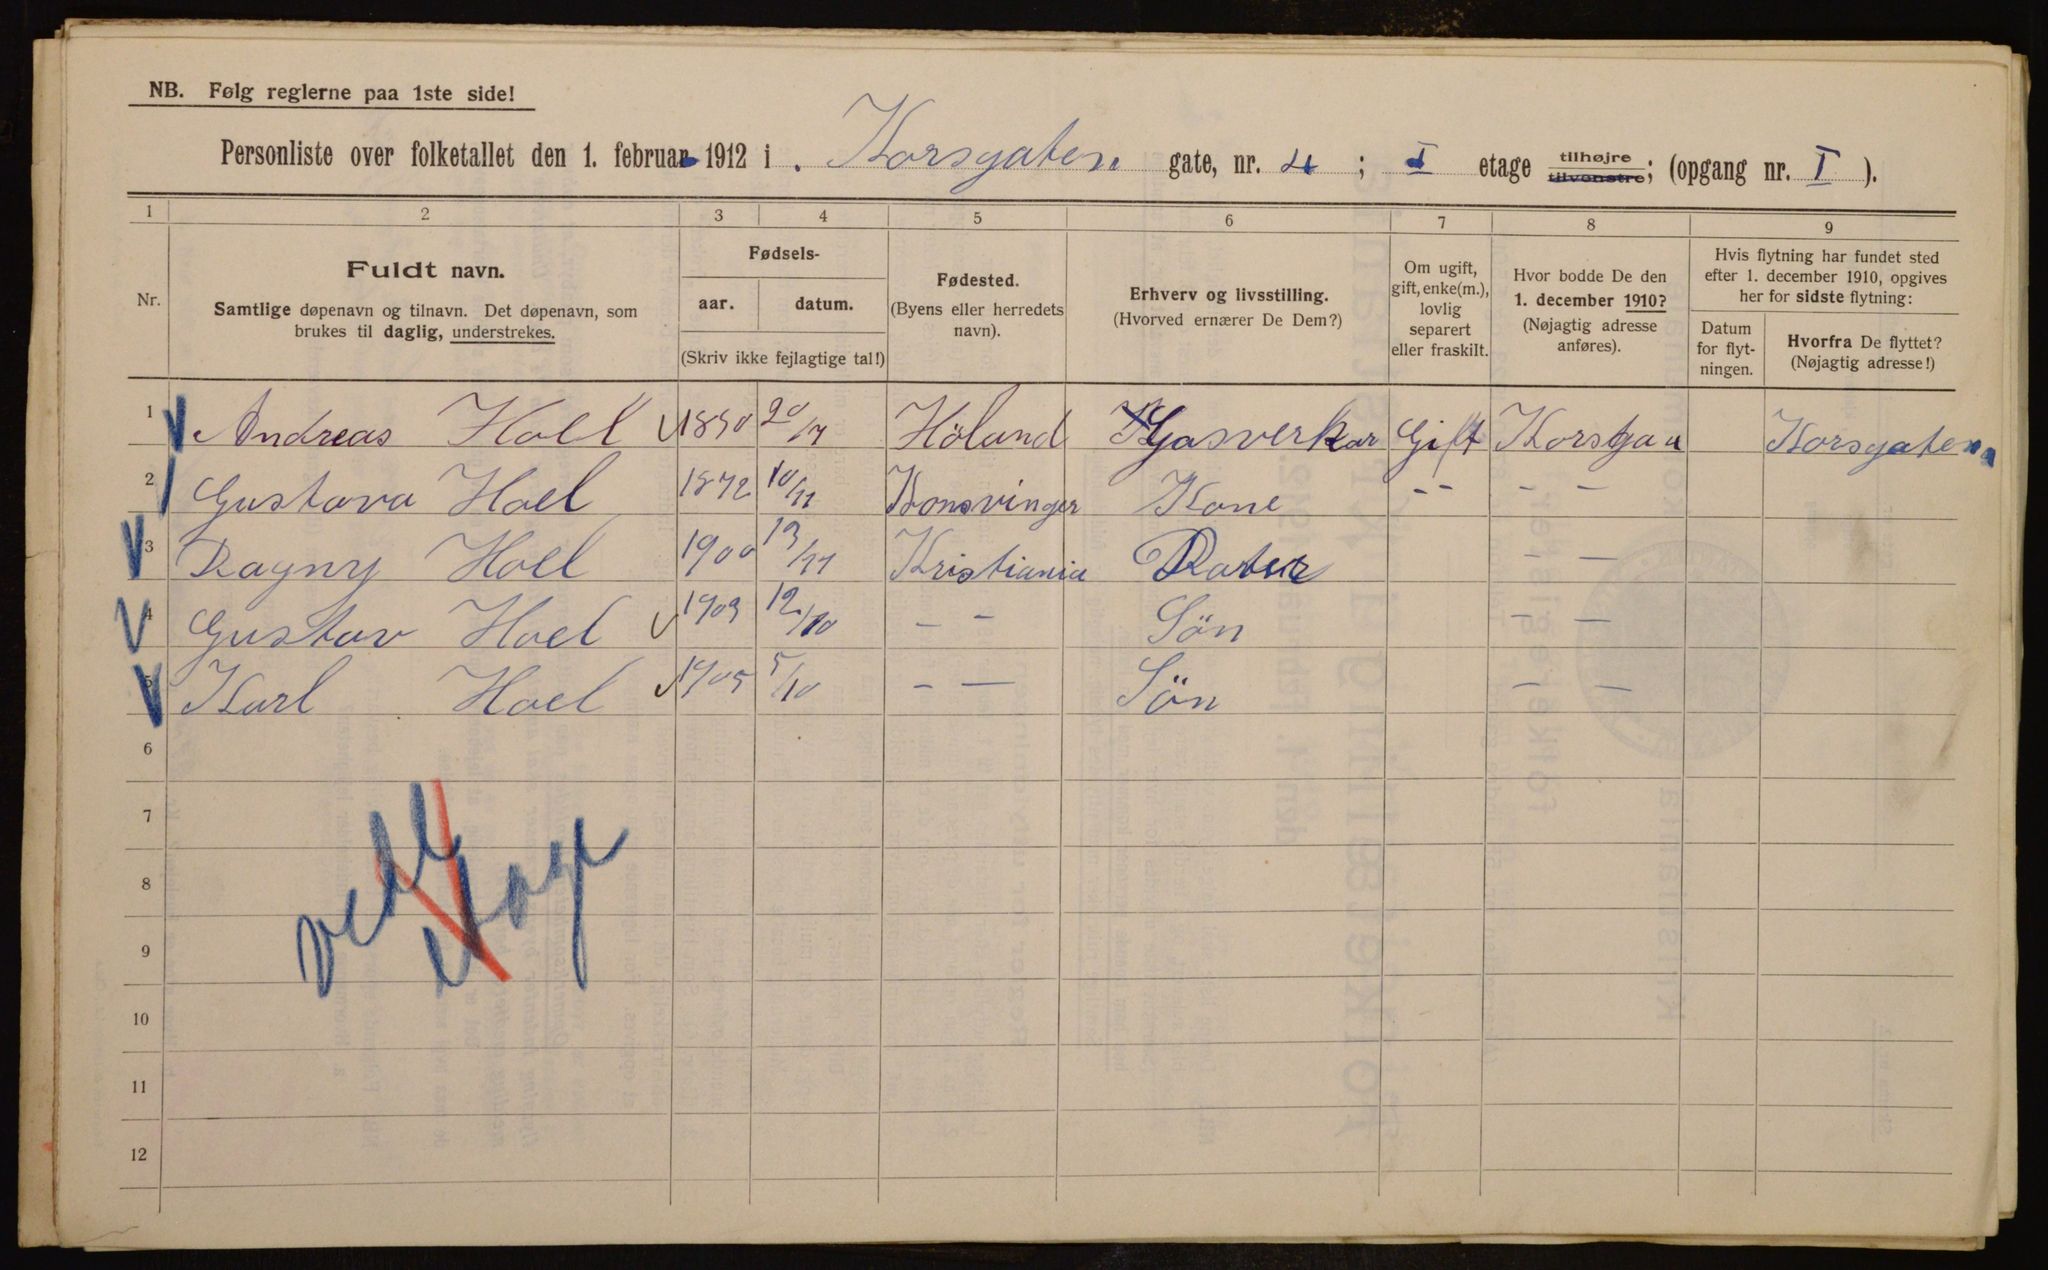 NB. Følg reglerne paa 1ste side!
Personliste over folketallet den 1. februar 1912 i Korsgaten gate, nr. 4 ; I etage tilhøjre tilvenstre; (opgang nr. I ).
1 2 3 4 5 6 7 8 9
Nr.
Fuldt navn.
Samtlige døpenavn og tilnavn. Det døpenavn, som
brukes til daglig, understrekes.
Fødsels-
aar. datum.
(Skriv ikke fejlagtige tal!)
Fødested.
(Byens eller herredets
navn).
Erhverv og livsstilling.
(Hvorved ernærer De Dem?)
Om ugift,
gift, enke(m.),
lovlig
separert
eller fraskilt.
Hvor bodde De den
1. december 1910?
(Nøjagtig adresse
anføres).
Hvis flytning har fundet sted
efter 1. december 1910, opgives
her for sidste flytning:
Datum
for flyt-
ningen.
Hvorfra De flyttet?
(Nøjagtig adresse!)
1 Andreas Hoel Höland Gasverkar Gift Korsgaten
2 Gustava Hoel 1872 10/11 Konsvinger Kone -- - -
3 Ragny Hoel 1900 13/11 Kristiania - -
4 Gustav Hoel 1903 12/10 - - Sön - -
5 Karl Hoel 1905 5/10 - - Sön - -
6
7
8
9
10
11
12